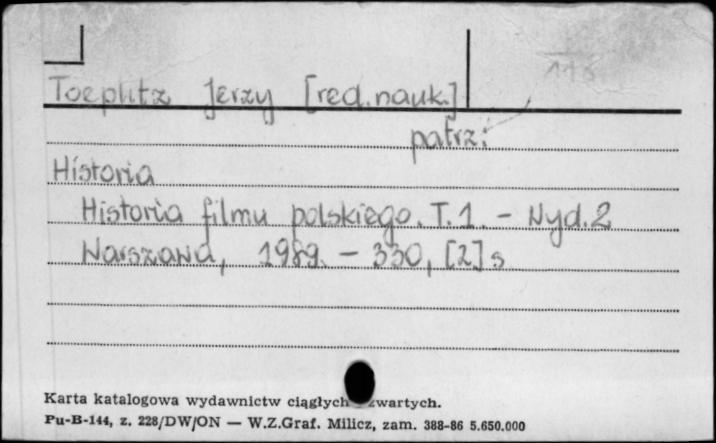 Toeplitz Jerzy [red.nauk.]
patrz:
Historia
Historia filmu polskiego. T.1. - Wyd.2
Warszawa, 1989. - 330, [2] s
Karta katalogowa wydawnictw ciągłych zwartych.
Pu-B-144, z. 228/DW/ON — W.Z.Graf. Milicz, zam. 388-86 5.650.000